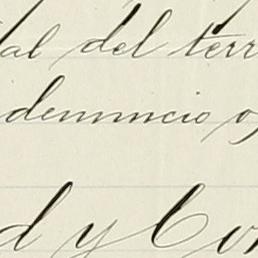 al del terr
denuncio o
d y Con